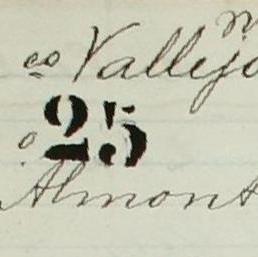 co Vallejo
25
Almont